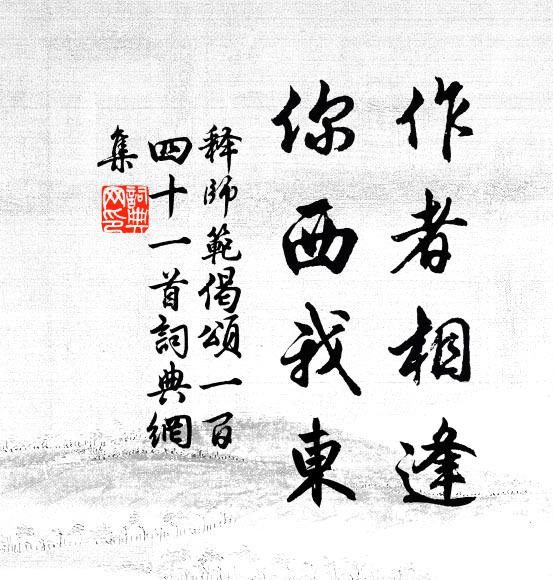 作者相逢
你西我東
释師範偈頌一百
四十一首詞典網
集
詞典網印